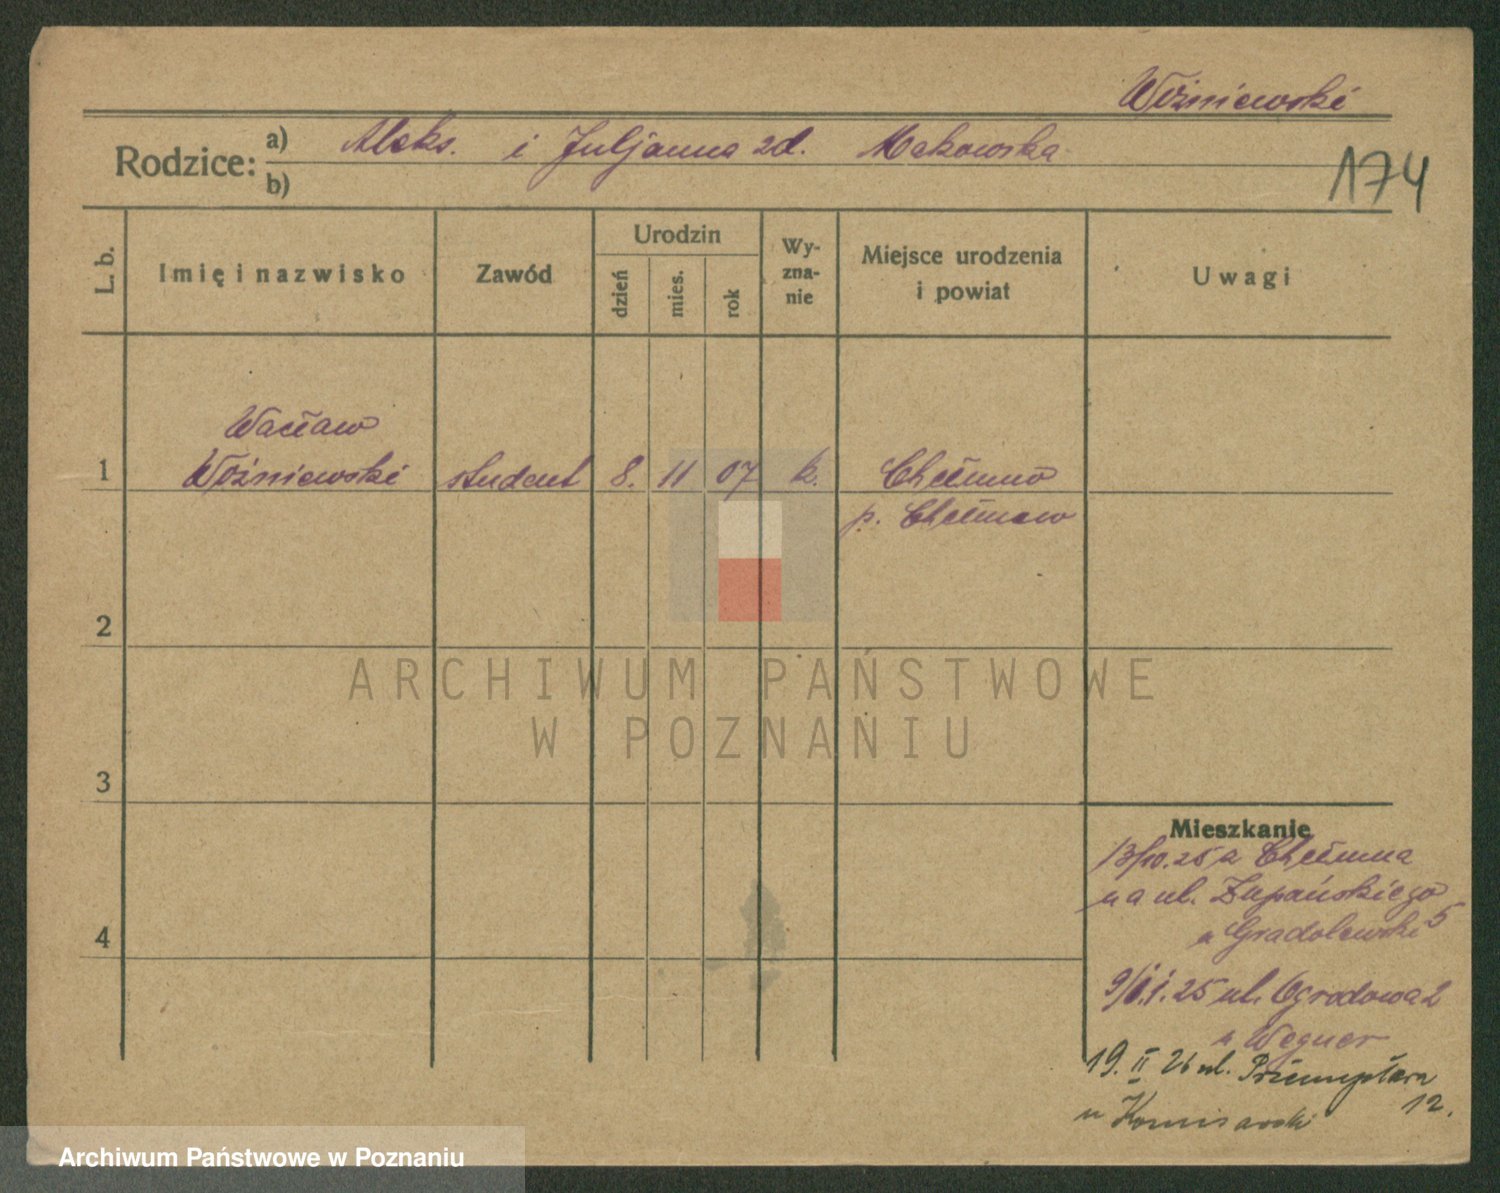 Wóżniewski
Rodzice: a) Aleks. i Juljanna zd. Makowska
b)
174
L. b.
Imię i nazwisko
Zawód
Urodzin
dzień
mies.
rok
Wy-
zna-
nie
Miejsce urodzenia
i powiat
Uwagi
Wacław
1 Wóżniewski student 8. 11 07 k. Chełmno
p. Chełmno
2
ARCHIWUM PAŃSTWOWE
W POZNANIU
3
Mieszkanie
13/10.25 z Chełmna
na ul. Żupańskiego
5
u Gradolewski
4
25 ul. Ogrodowa 2
u Wegner
19. II 26 ul. Przemysława
12.
u Komisarski
Archiwum Państwowe w Poznaniu